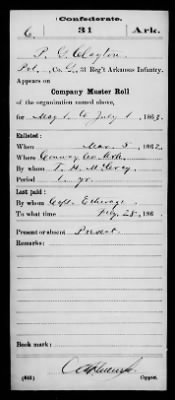 Confederate.
C. 31 Ark.
P. G. Clayton
Pvt., Co. G, 31 Reg't Arkansas Infantry.
Appears on
Company Muster Roll
of the organization named above,
for May 1 to July 1, 1862.
Enlisted:
When Mar. 5, 1862.
Where Conway Co. Ark.
By whom T. H. McCroy
Period 1 yr.
Last paid:
By whom Capt.
To what time Feby. 28, 186
Present or absent Present
Remarks:
Book mark:
(642) Copyist.